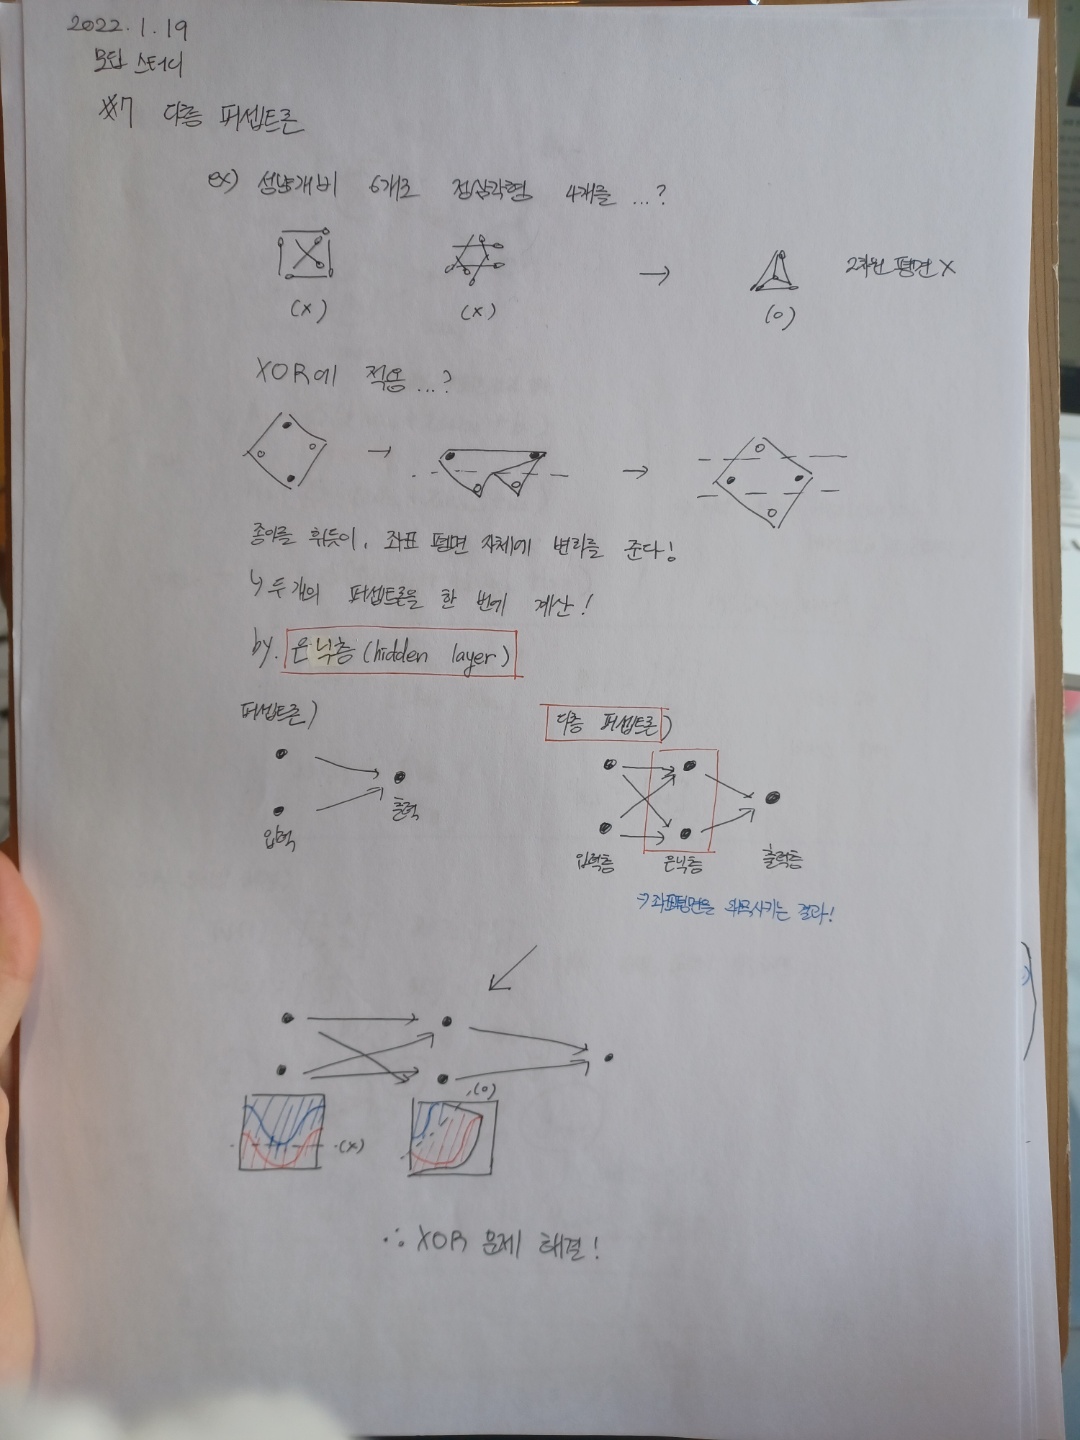 2022.1.19
모딥 스터디
#7 다층 퍼셉트론
ex) 성냥개비 6개로 정삼각형 4개를 ...?
(x) (x) → (o) 2차원 평면 X
XOR에 적용...?
종이를 휘듯이, 좌표 평면 자체에 변화를 준다!
↳ 두 개의 퍼셉트론을 한 번에 계산!
by. 은닉층 (hidden layer)
퍼셉트론) 다층 퍼셉트론)
출력
입력
입력층 은닉층 출력층
→ 좌표평면을 왜곡시키는 결과!
(o)
(x)
∴ XOR 문제 해결!